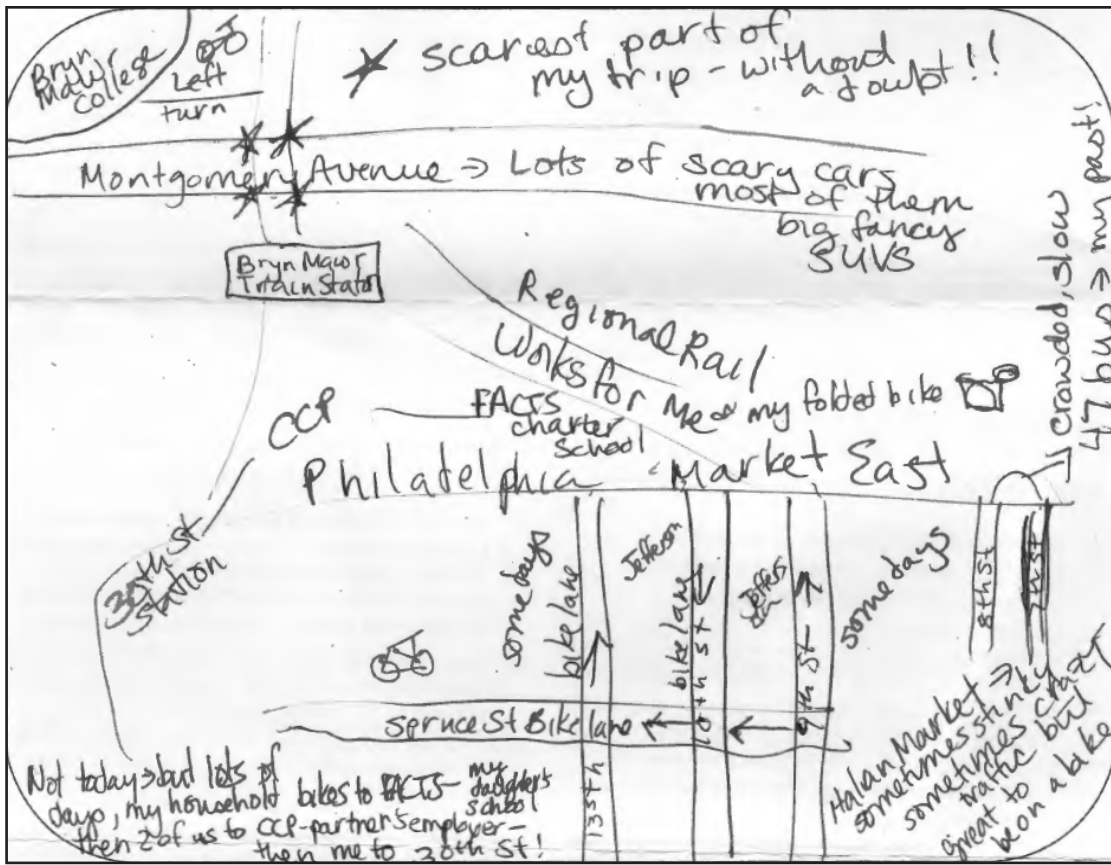 Bryn
Mawr
College
Left
turn
scariest part of
my trip - without
a doubt!!
Montgomery Avenue ⇒ Lots of scary cars
most of them
big fancy
SUVS
Bryn Mawr
Train Station
Regional Rail
Works for me & my folded bike
crowded, slow
47 bus ⇒ my past!
CCP
FACTS
charter
School
Philadelphia Market East
30th St
Station
some days
bike lane
13th
Jefferson
bike lane
10th St
Jefferson
9th St
some days
8th St
Spruce St Bike lane
Italian Market ⇒
sometimes stinky
sometimes crazy
traffic but
great to
be on a bike
Not today ⇒ but lots of
days, my household bikes to FACTS - my daughter's school
then 2 of us to CCP - partner's employer -
then me to 30th St!